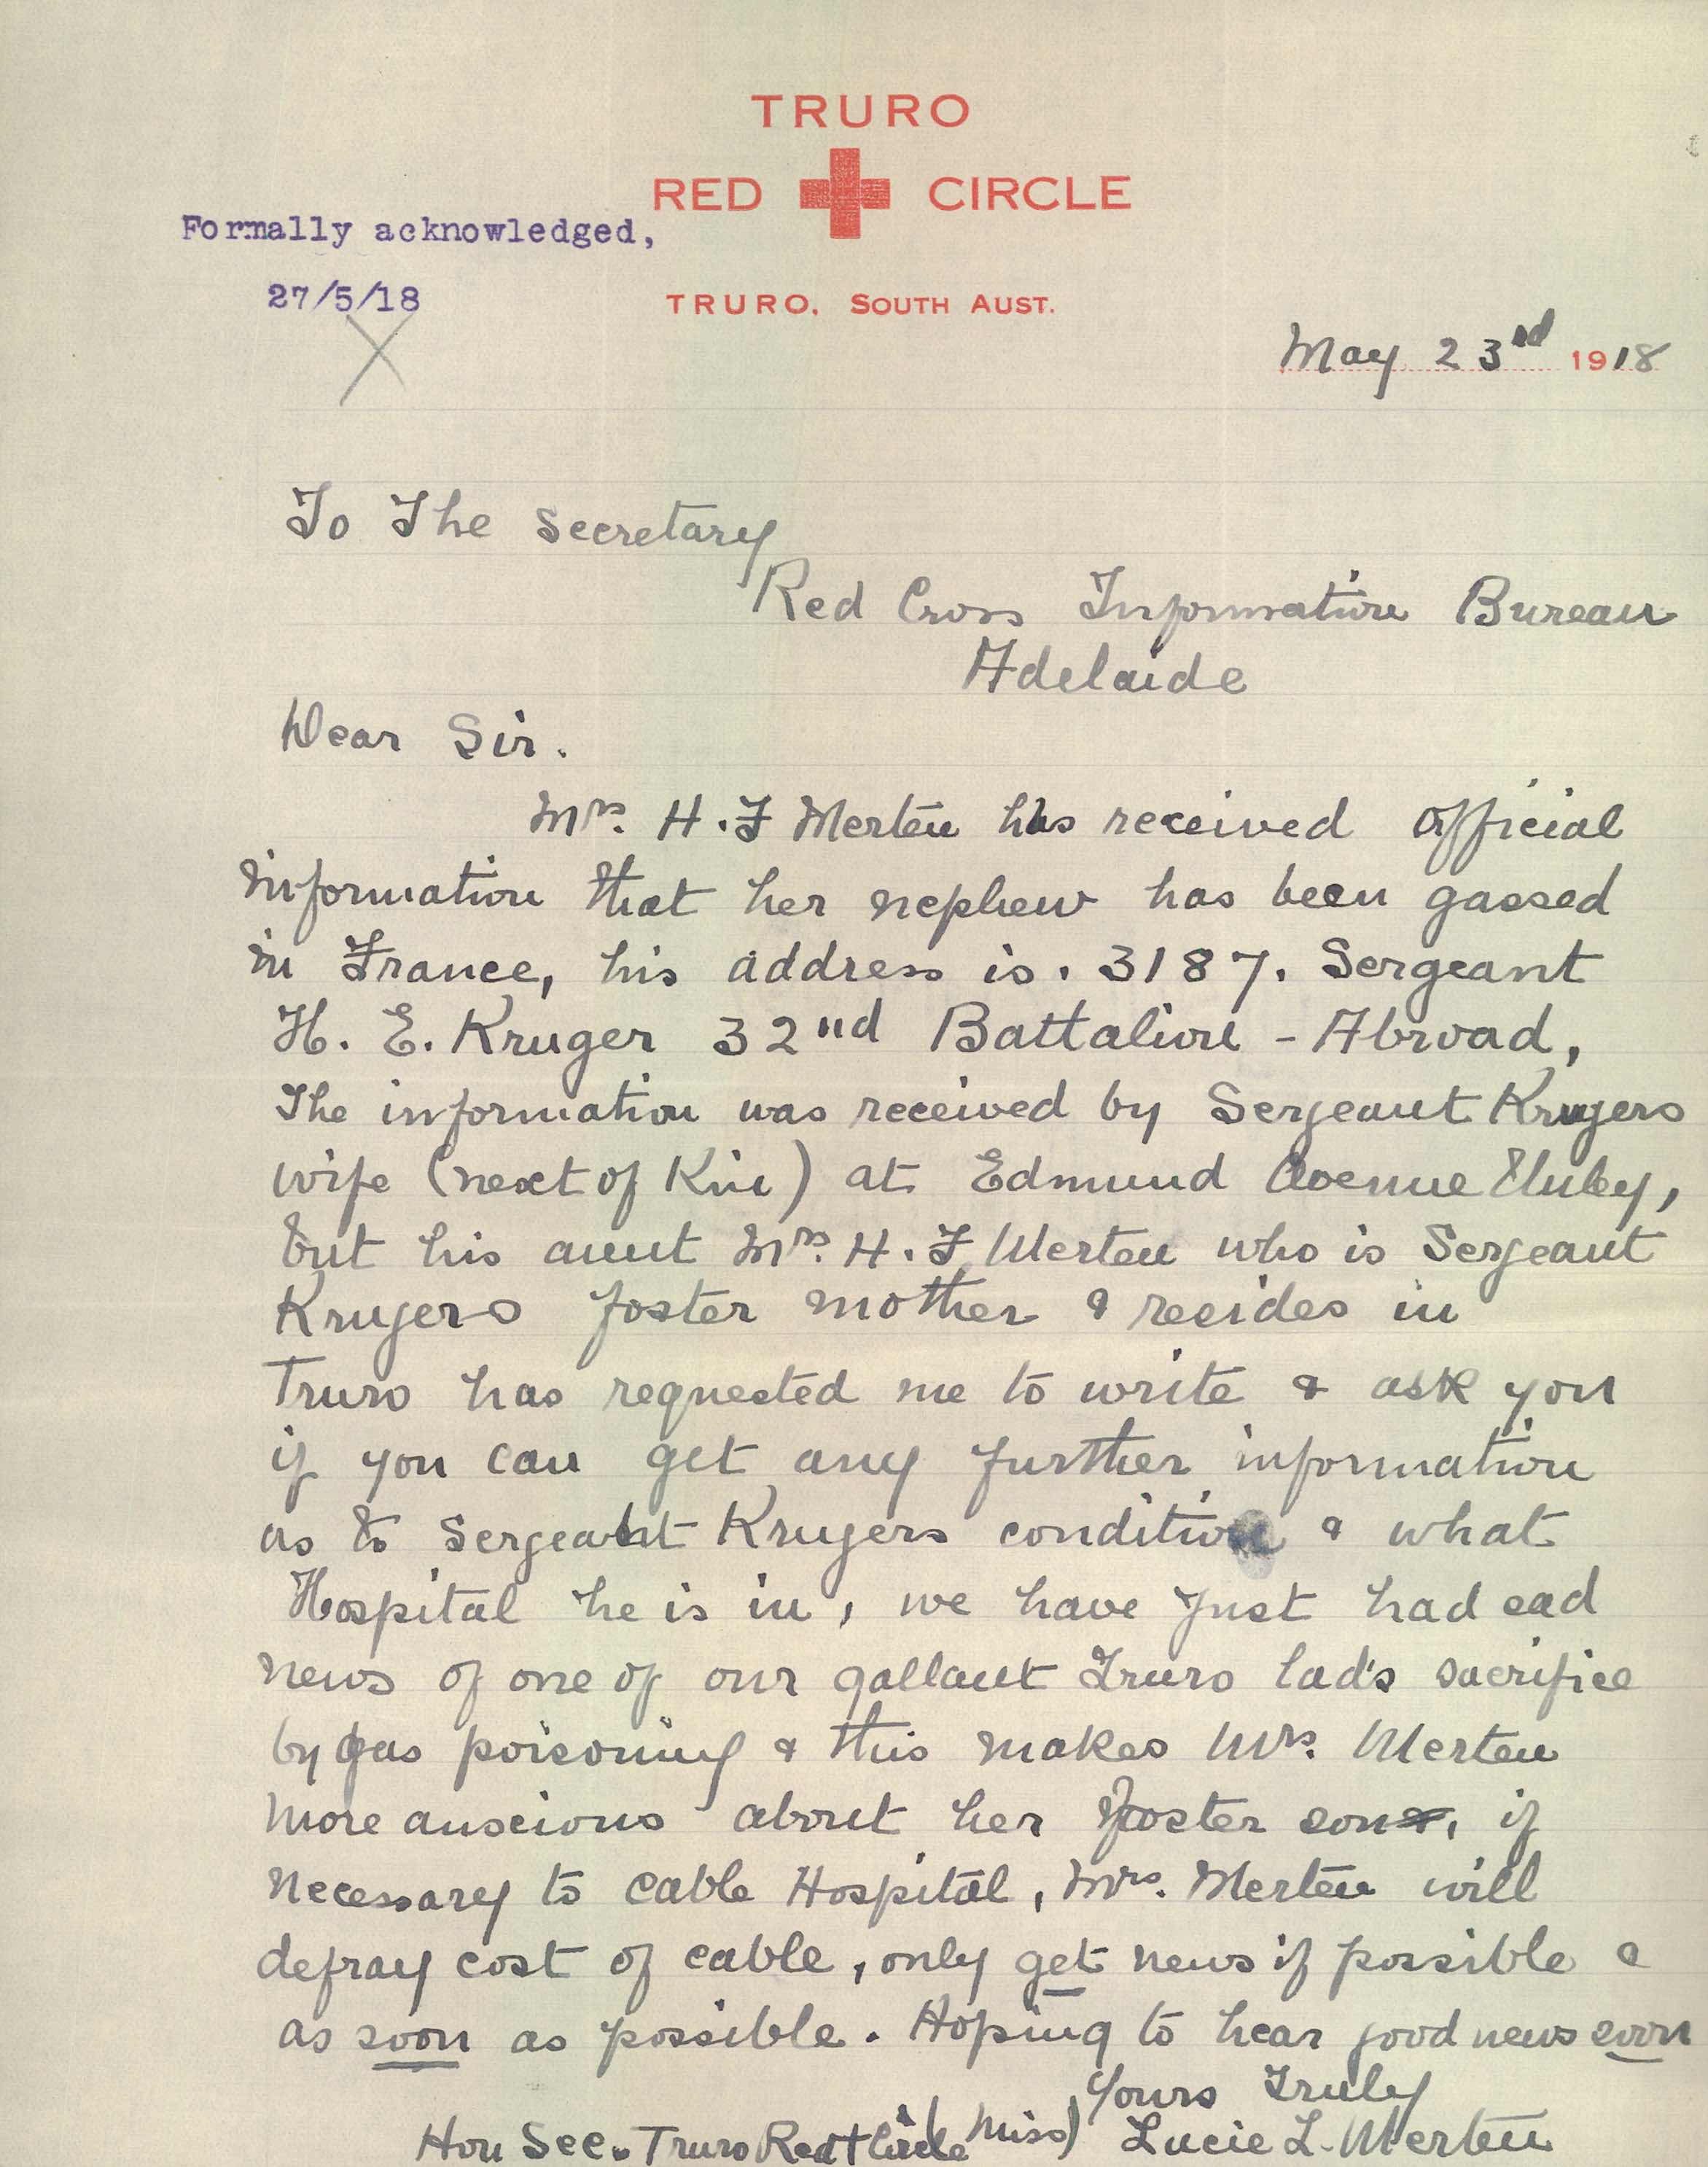 TRURO
RED CIRCLE
Formally acknowledged,
27/5/18
TRURO. SOUTH AUST.
May 23rd 1918
To The Secretary
Red Cross Information Bureau
Adelaide
Dear Sir.
Mrs. H. F Merten has received official
information that her nephew has been gassed
in France, his address is. 3187. Sergeant
H. E. Kruger 32nd Battalion - Abroad,
The information was received by Sergeant Krugers
wife (next of Kin) at Edmund Avenue Unley,
but his aunt Mrs. H. F Merten who is Sergeant
Krugers foster mother & resides in
Truro has requested me to write & ask you
if you can get any further information
as to Sergeant Krugers condition & what
Hospital he is in, we have just had sad
news of one of our gallant Truro lad's sacrifice
by gas poisoning & this makes Mrs. Merten
more anxcious about her foster son, if
necessary to cable Hospital, Mrs. Merten will
defray cost of cable, only get news if possible &
as soon as possible. Hoping to hear good news soon
Yours Truly
Hon Sec. Truro Red + Circle (Miss) Lucie L. Merten